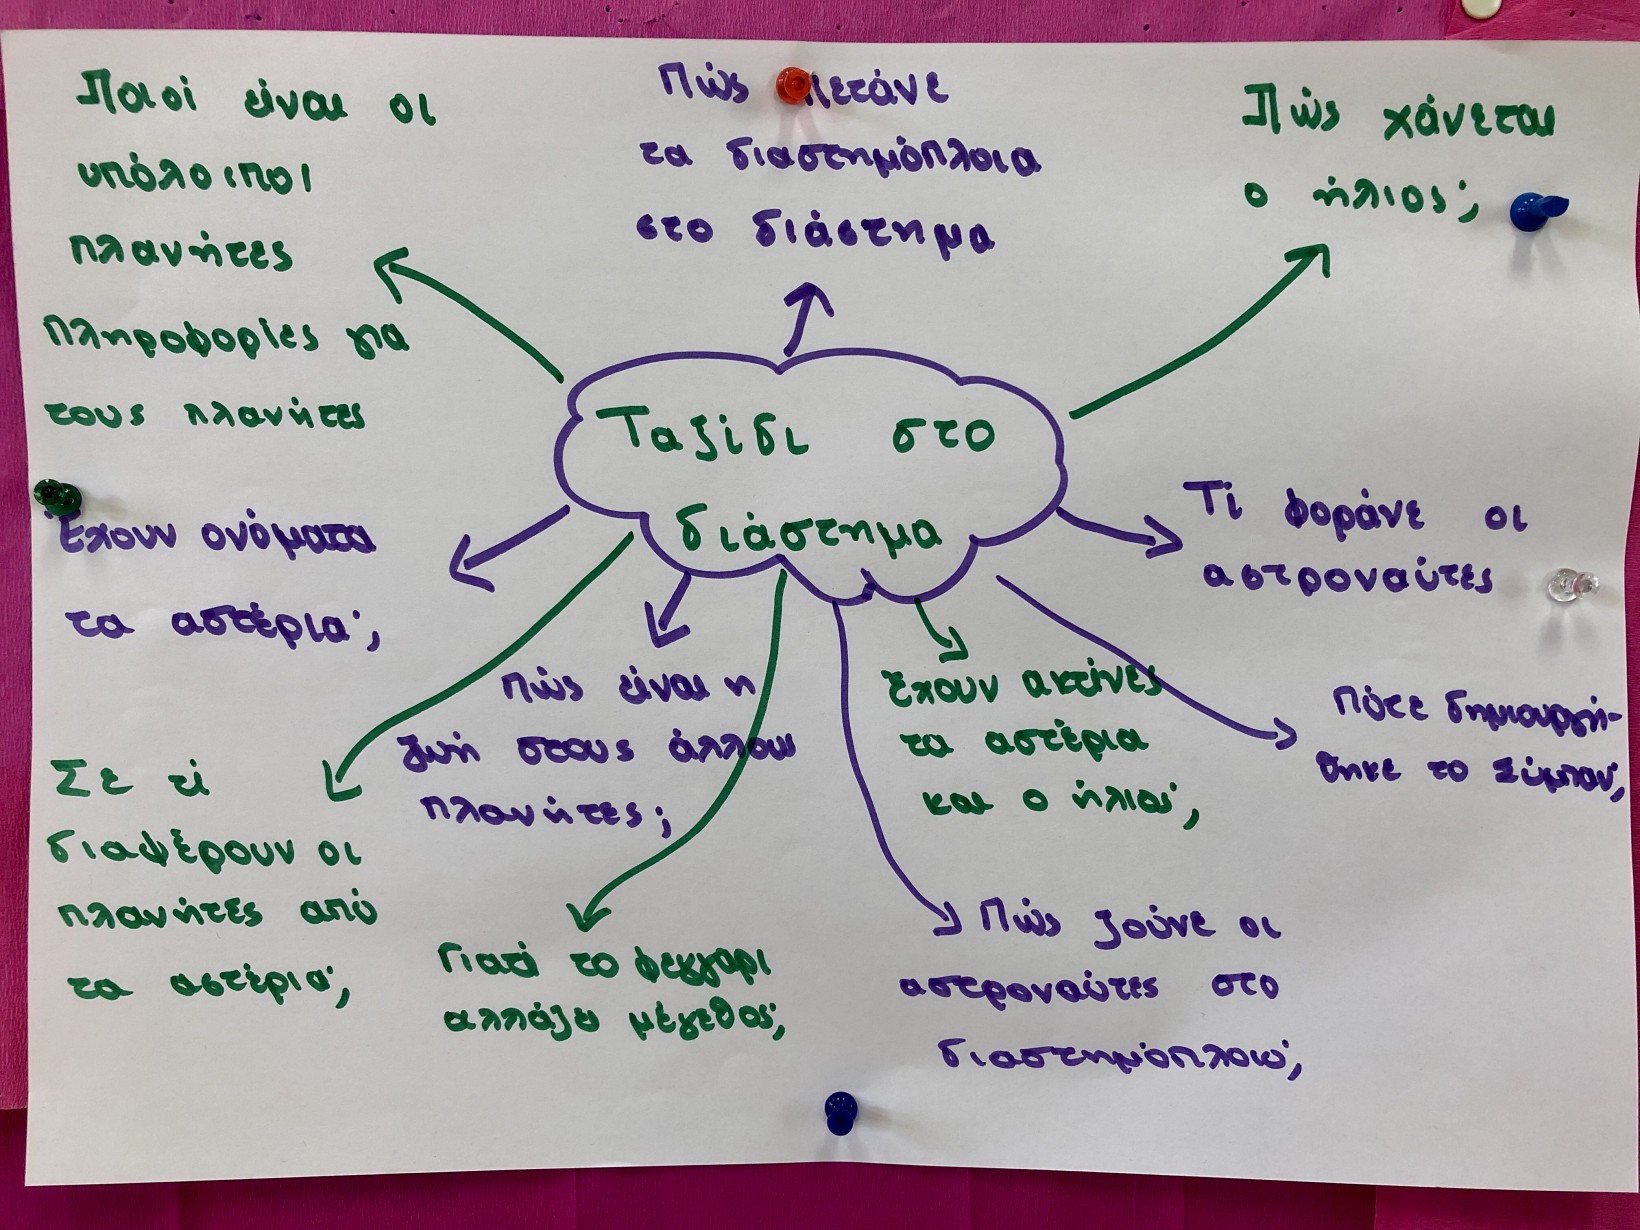 Ποιοί είναι οι
υπόλοιποι
πλανήτες
πληροφορίες για
τους πλανήτες
Πώς πετάνε
τα διαστημόπλοια
στο διάστημα
Πώς χάνεται
ο ήλιος;
Ταξίδι στο
διάστημα
Τί φοράνε οι
αστροναύτες
Έχουν ονόματα
τα αστέρια;
Πώς είναι η
ζωή στους άλλους
πλανήτες;
Έχουν ακτίνες
τα αστέρια
και ο ήλιος;
Πότε δημιουργή-
θηκε το Σύμπαν;
Σε τί
διαφέρουν οι
πλανήτες από
τα αστέρια;
Γιατί το φεγγάρι
αλλάζει μέγεθος;
Πώς ζούνε οι
αστροναύτες στο
διαστημόπλοιο;